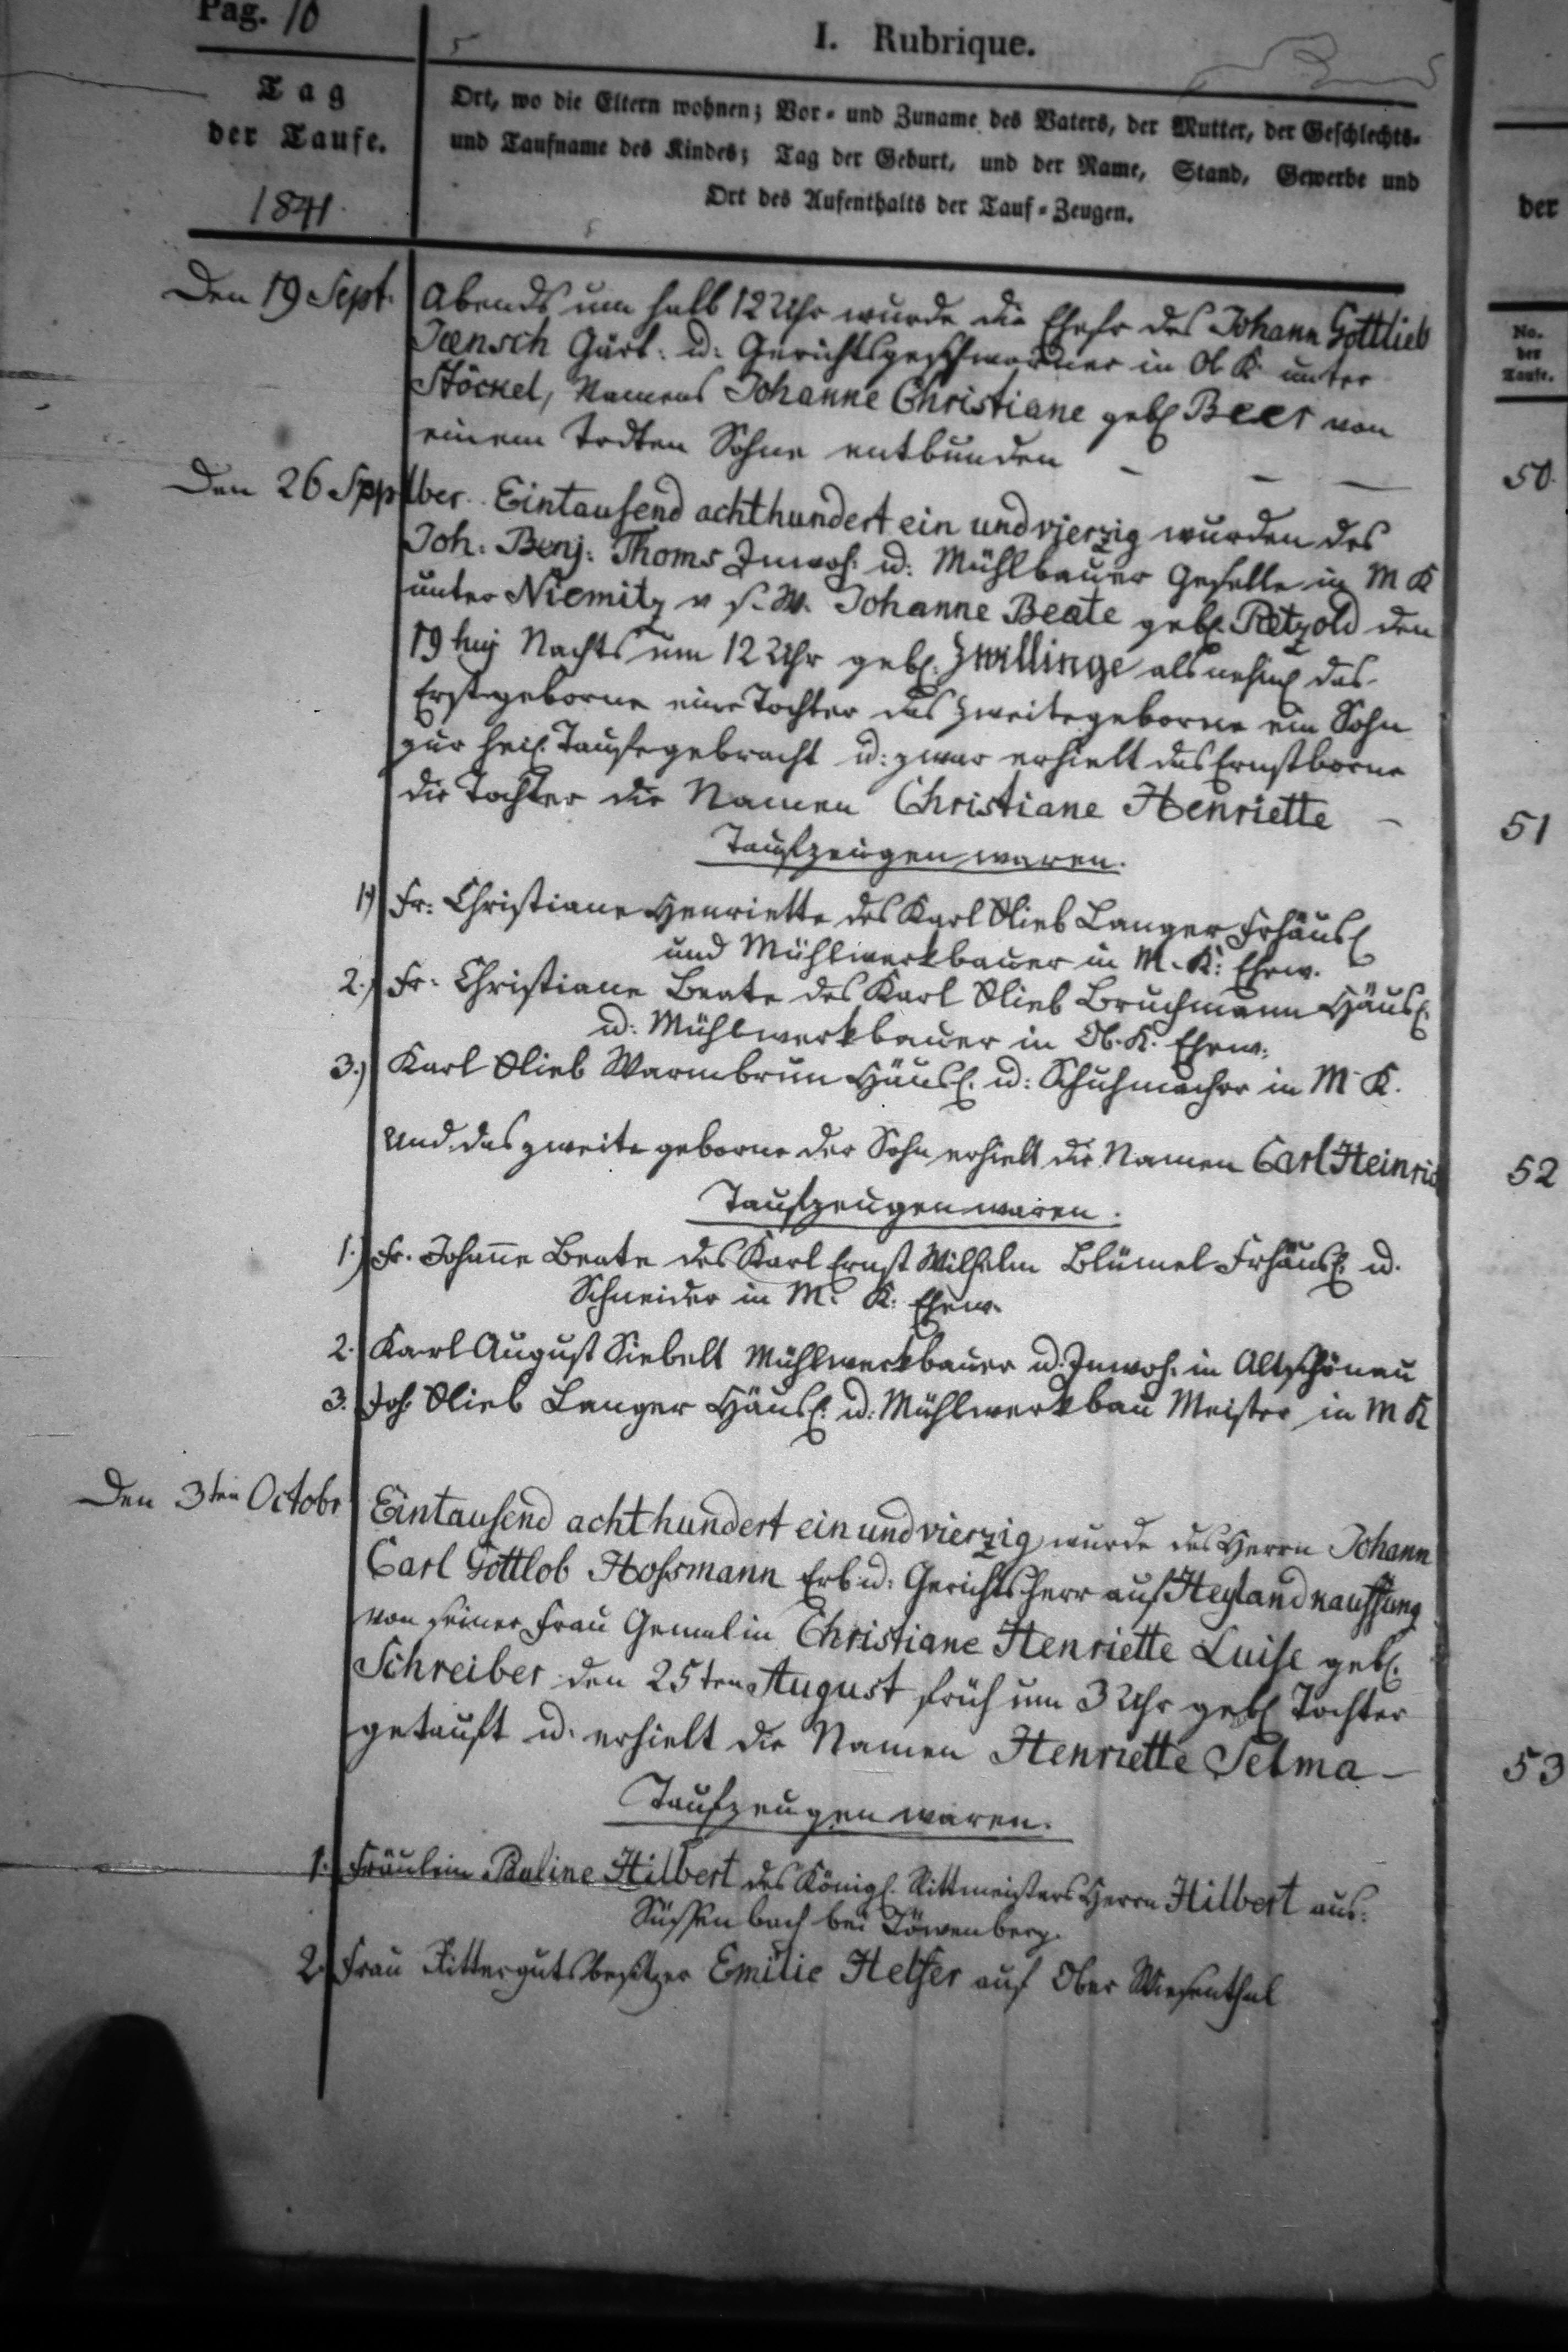 Pag. 10
I. Rubrique.
Tag
der Taufe.
1841.
Ort, wo die Eltern wohnen; Vor- und Zuname des Vaters, der Mutter, der Geschlechts-
und Taufname des Kindes; Tag der Geburt, und der Name, Stand, Gewerbe und
Ort des Aufenthalts der Tauf-Zeugen.
der
No.
der
Taufe.
Den 19 Sept. Abends um halb 12 Uhr wurde die Ehefr des Johann Gottlieb
Jaensch Gärt: u: Gerichtsgeschworner in Ob K unter
Stöckel, Namens Johanne Christiane geb Beer von
einem todten Sohne entbunden - - — 50.
Den 26 Septber. Eintausend achthundert ein und vierzig wurden des
Joh: Benj: Thoms Inwoh: u: Mühlbauer Geselle in M K
unter Niemitz v s. W. Johanne Beate geb. Paetzold den
19 huj Nachts um 12 Uhr geb. Zwillinge als nehml das
Erstgeborne eine Tochter das Zweitegeborne ein Sohn
zur heil. Taufe gebracht u: zwar erhielt das Erstborne
die Tochter die Namen Christiane Henriette - 51
Taufzeugen waren.
1) Fr: Christiane Henriette des Karl Glieb Langer Frhäusl
und Mühlwerkbauer in M. K: Ehew.
2.) Fr: Christiane Beate des Karl Glieb Bruchmann Häusl.
u: Mühlwerkbauer in Ob. K. Ehew:
3.) Karl Glieb Warmbrun Häusl. u: Schuhmacher in M K.
Und das zweite geborne der Sohn erhielt die Namen Carl Heinric 52
Taufzeugen waren.
1.) Fr. Johanne Beate des Karl Ernst Wilhelm Blümel Frhäusl. u.
Schneider in M. K: Ehew.
2. Karl August Siebelt Mühlwerkbauer u. Inwoh. in Altschönau
3. Joh. Glieb Langer Häusl. u: Mühlwerkbau Meister in M K
Den 3ten Octobr Eintausend achthundert ein und vierzig wurde des Herrn Johann
Carl Gottlob Hossmann Erb u: Gerichtsherr auf Heylandkauffung
von seiner Frau Gemalin Christiane Henriette Luise geb.
Schreiber den 25ten August früh um 3 Uhr geb Tochter
getauft u. erhielt die Namen Henriette Selma — 53
Taufzeugen waren.
1. Fräulein Pauline Hilbert des Königl. Rittmeisters Herrn Hilbert aus
Süssenbach bei Löwenberg.
2. Frau Rittergutsbesitzer Emilie Helfer auf Ober Wiesenthal